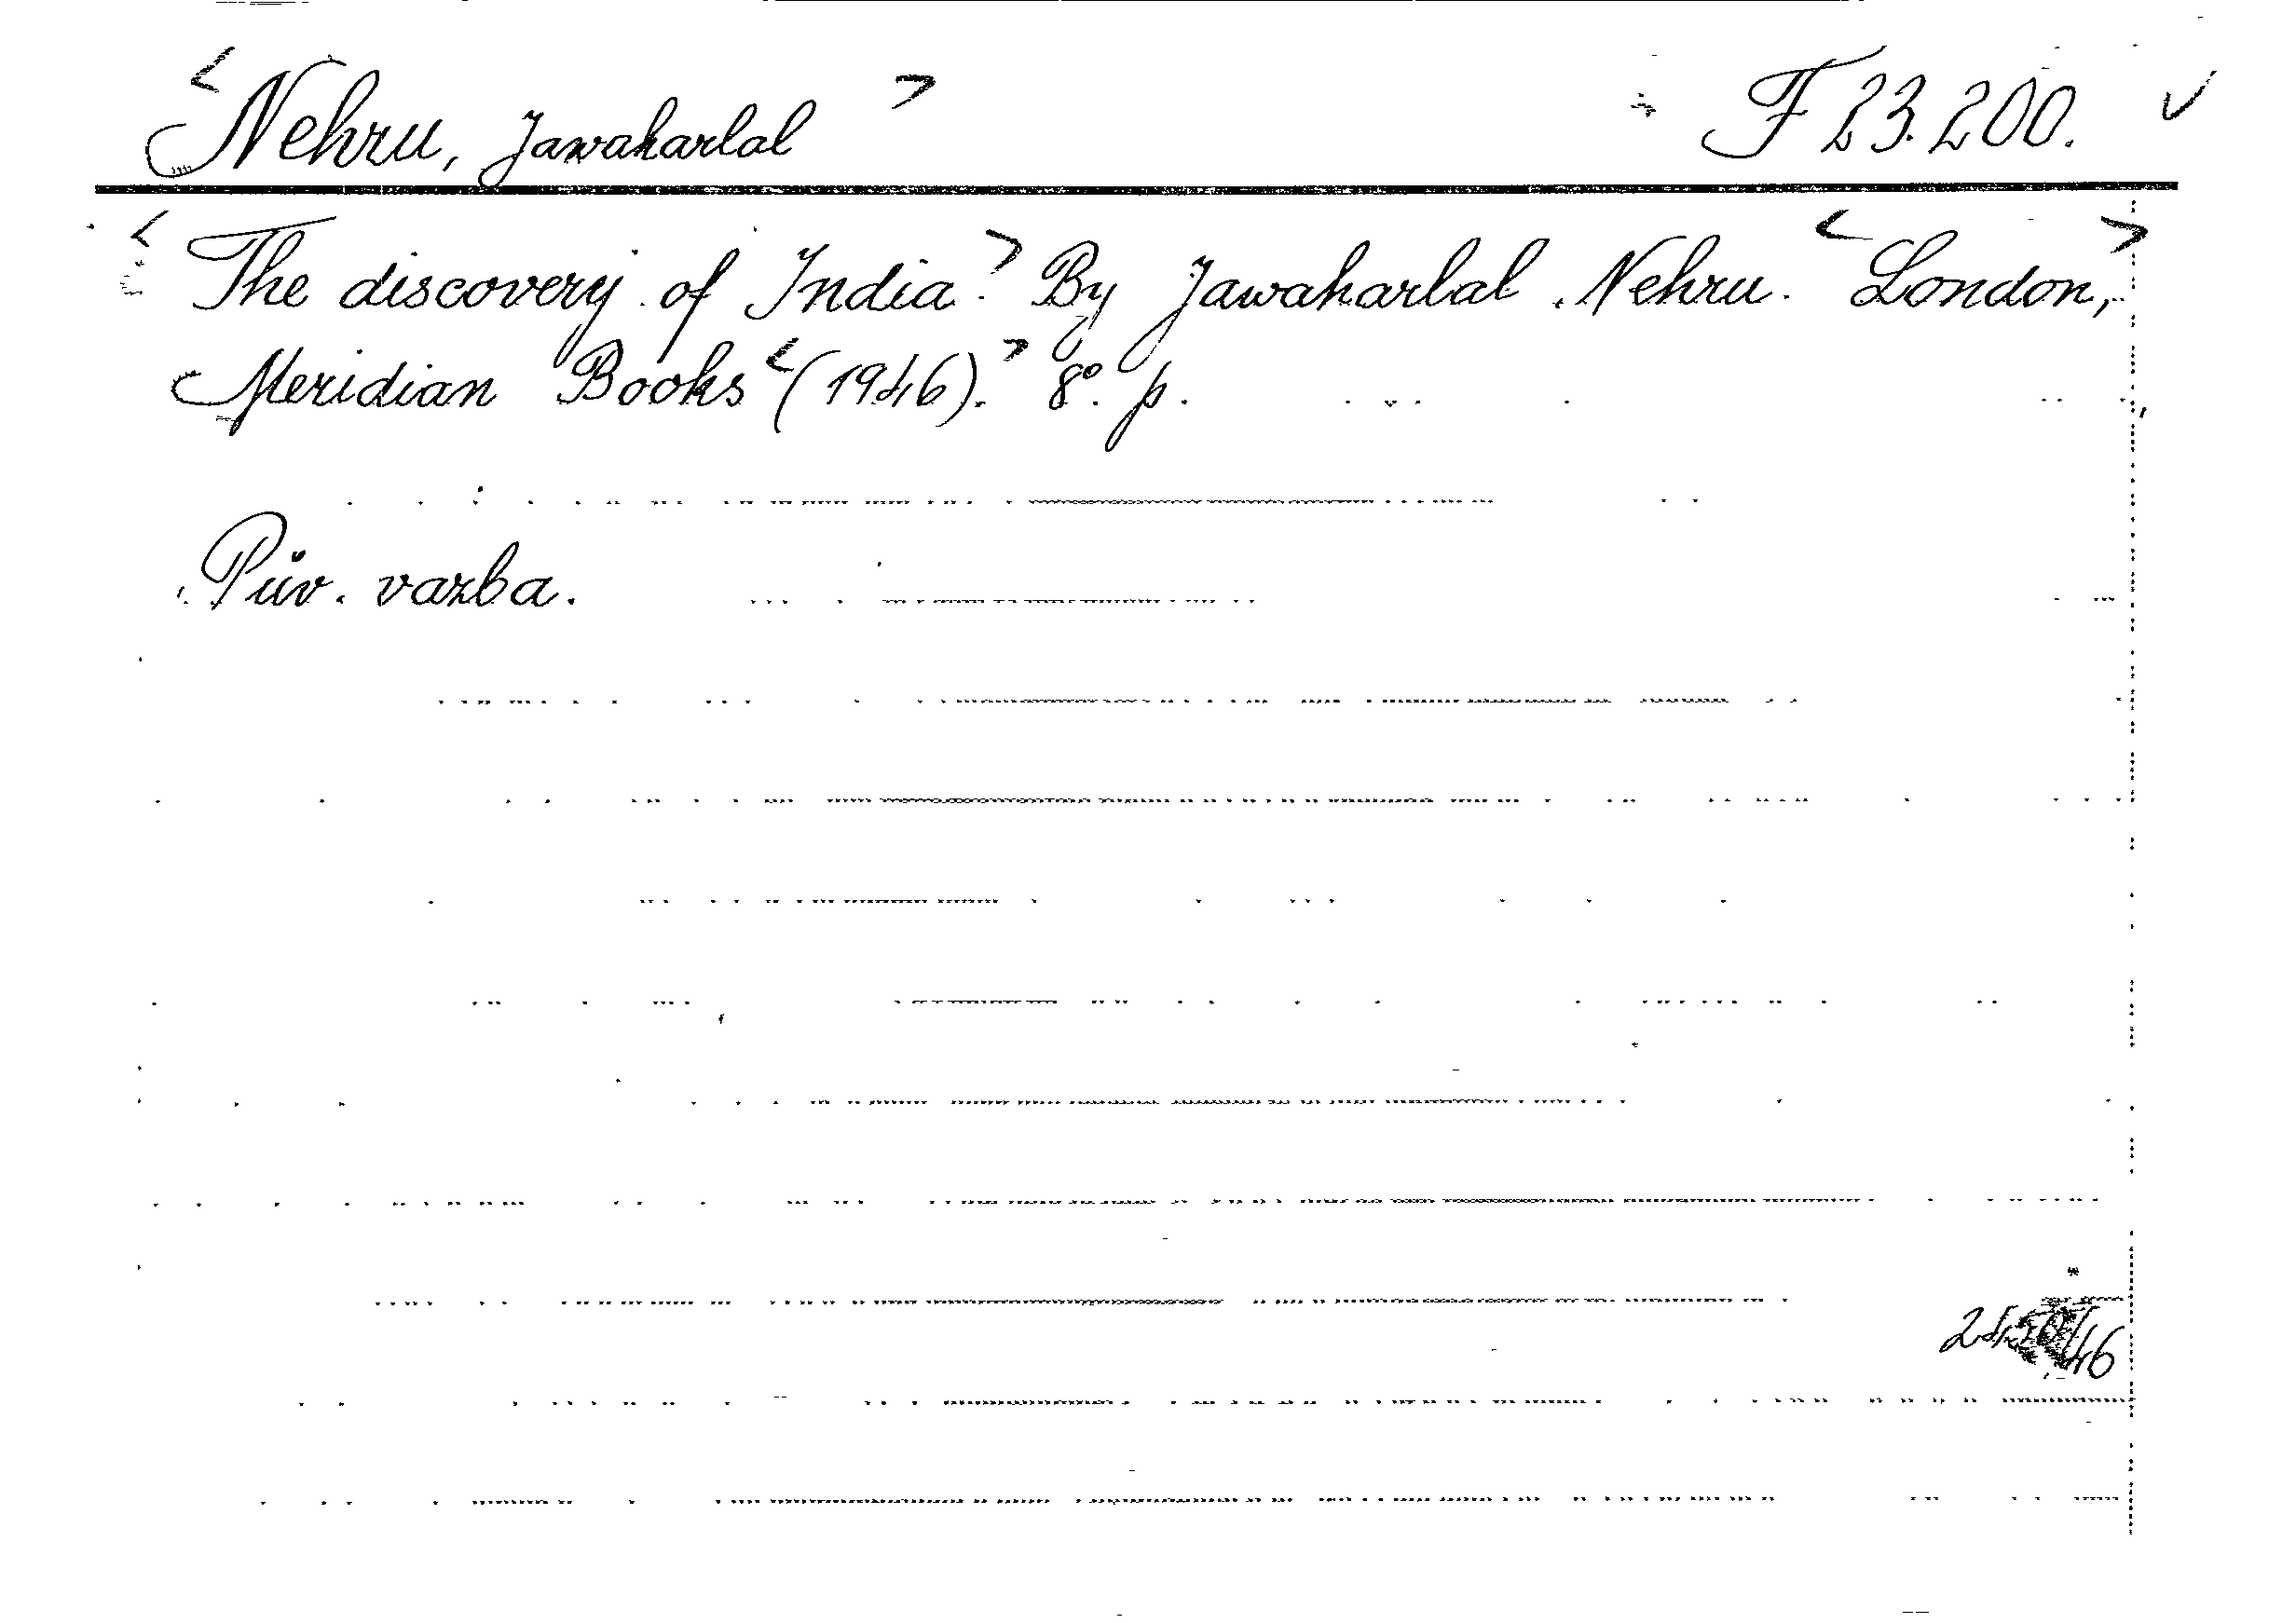 <Nehru, Jawaharlal> F 23.200. ✓
<The discovery of India.> By Jawaharlal Nehru. <London,>
Meridian Books <(1946).> 8°. p.
Pův. vazba.